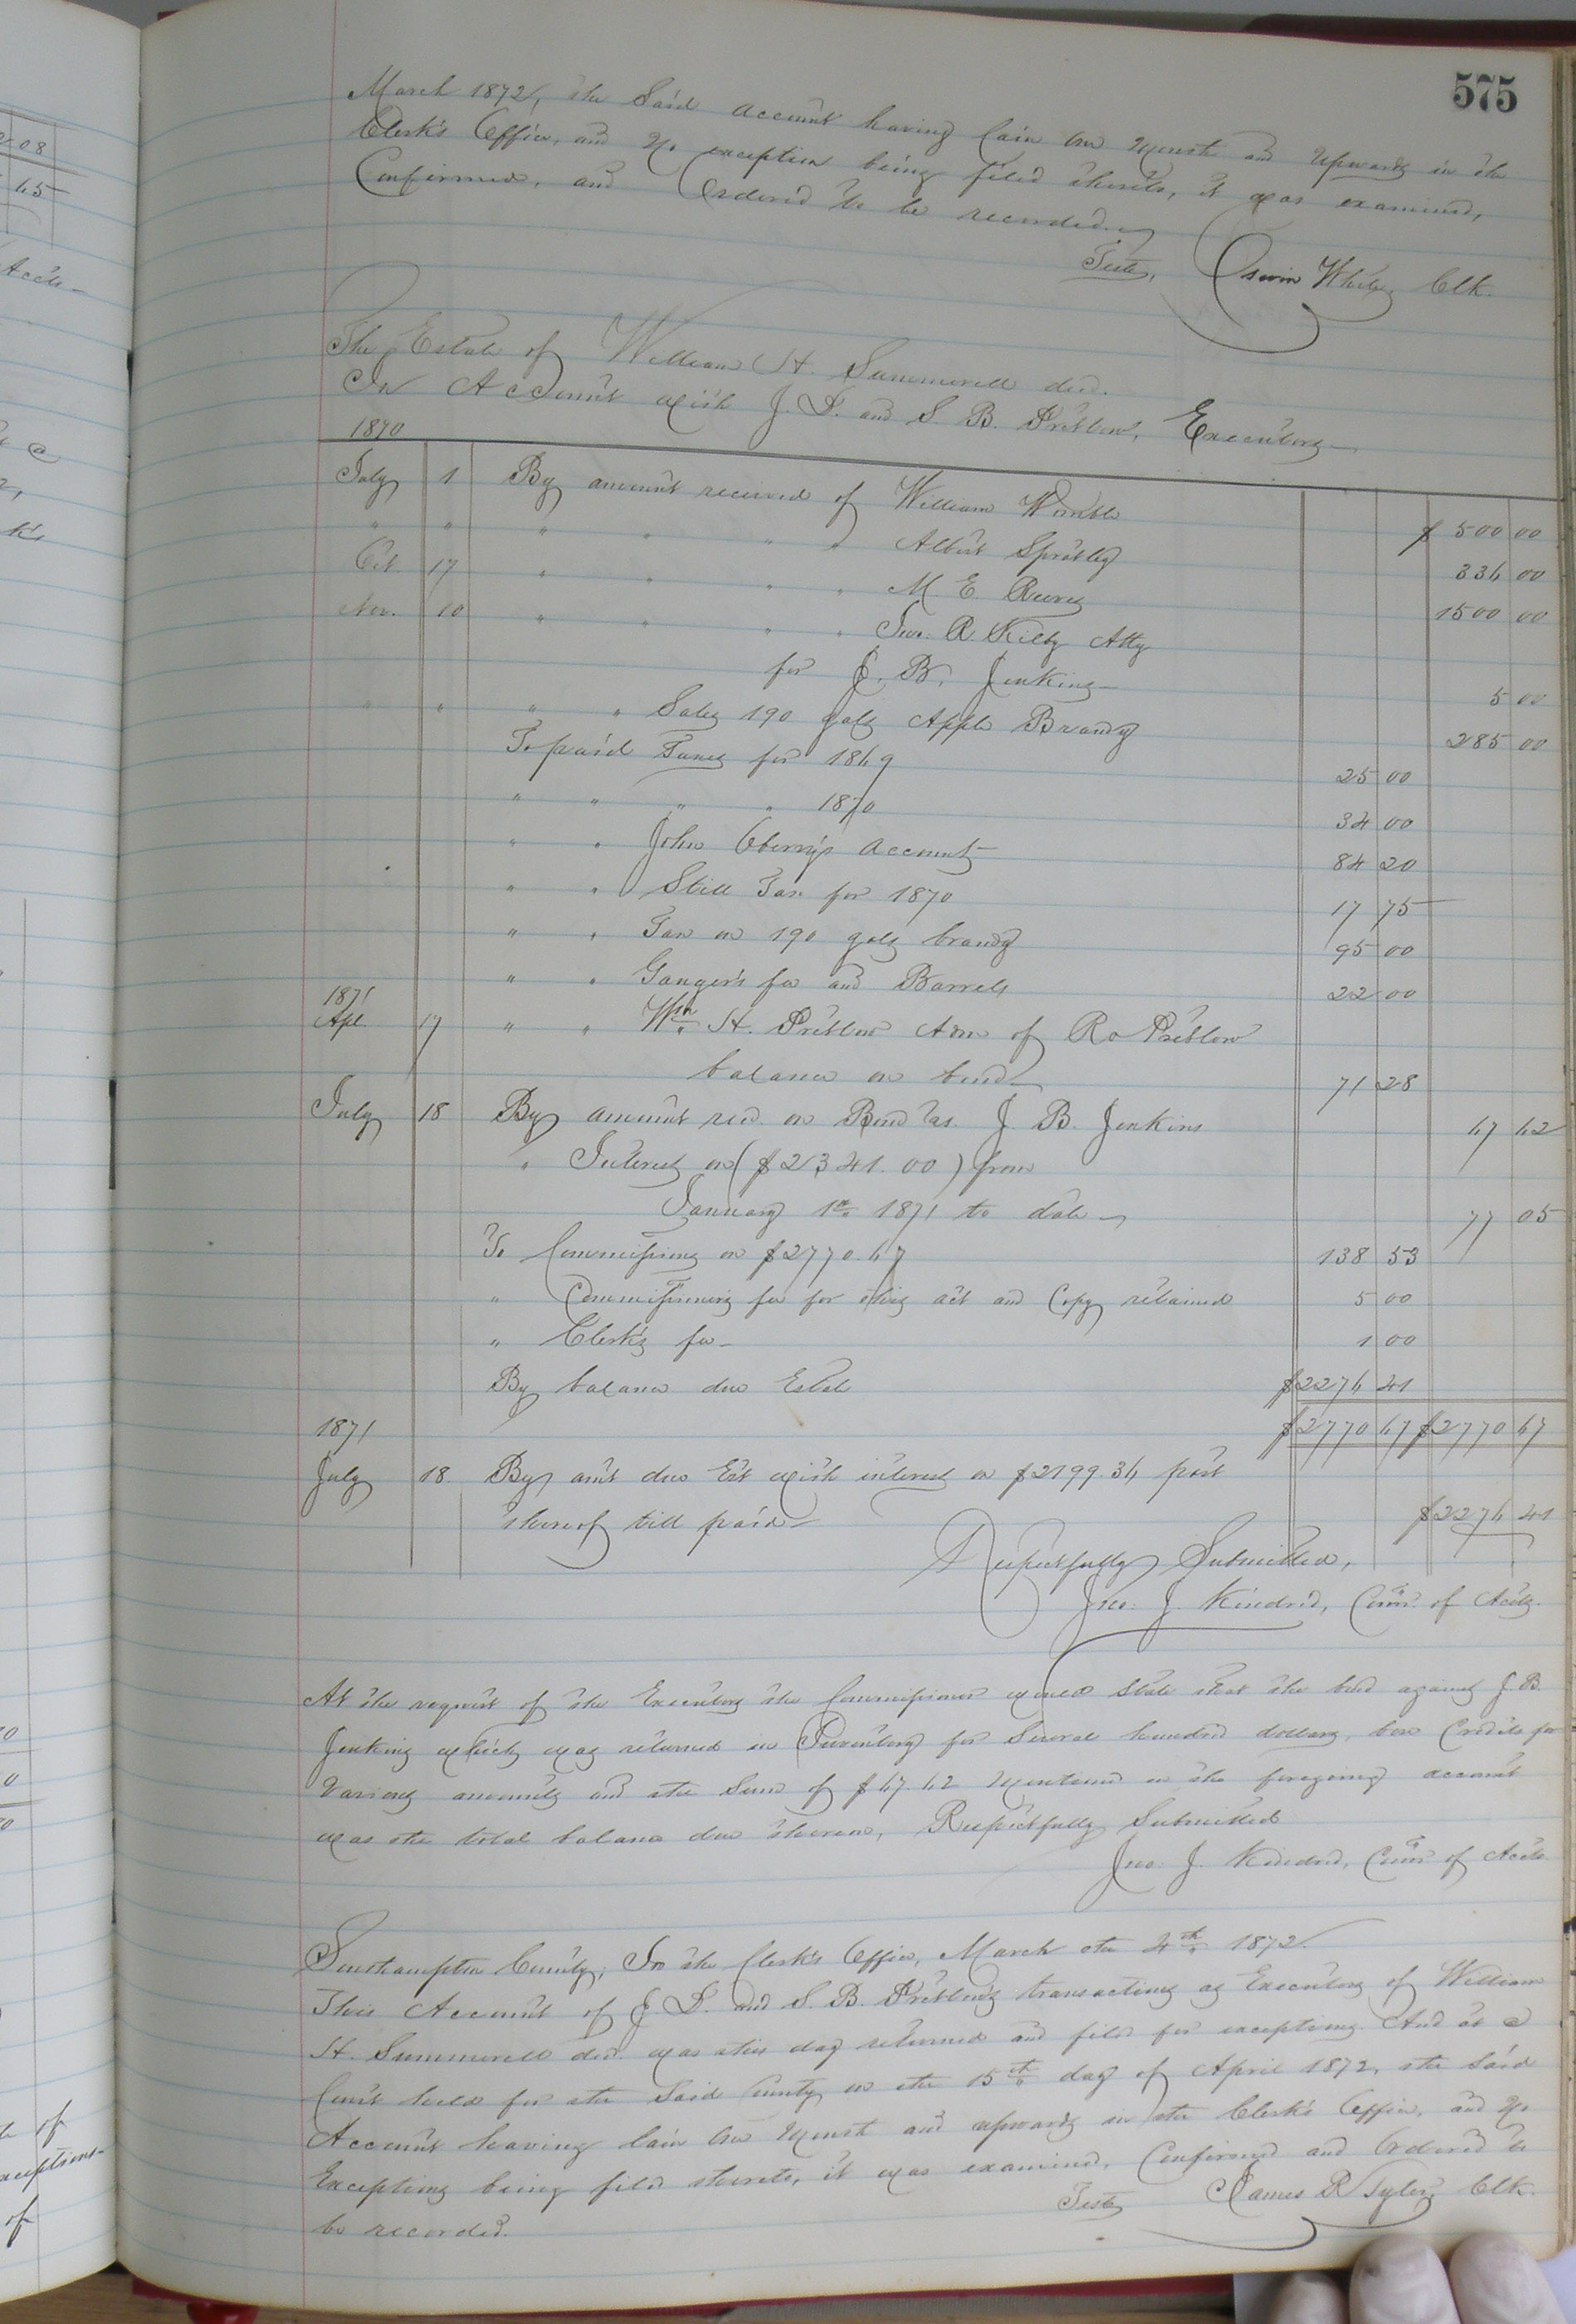 575
March 1872, the said account having lain one Month and upwards in the
Clerk's Office, and no exception being filed thereto, it was examined,
Confirmed, and Ordered to be recorded.
Teste, White, Clk.
The Estate of William H. Summerell decd.
In Account with J. D. and S. B. Pretlow, Executors
1870
July 1 By amount received of William Womble $500 00
" " " " " " Albert Spratley 336 00
Oct. 17 " " " " M. E. 1500 00
Nov. 10 " " " " Jno. R. Kilby Atty
for J. B. Jenkins 5 00
" " " " Sales 190 gals Apple Brandy 285 00
To paid Taxes for 1869 25 00
" " " " 1870 34 00
" " John Oberry's account 84 20
" " Still Tax for 1870 17 75
" " Tax on 190 gals brandy 95 00
" " Gauger's fee and Barrels 22 00
1871
Apl. 17 " " Wm. H. Pretlow Adm of Ro Pretlow
balance on bond 71 28
July 18 By amount recd. on Bond vs. J. B. Jenkins 67 62
" Interest on ($2341.00) from
January 1st 1871 to date 77 05
To Commissions on $2770.67 138 53
" Commissioner's fee for this act and Copy retained 5 00
" Clerk's fee 1 00
By balance due Estate $2276 41
1871 $2770 67 $2770 67
July 18. By amt due Est with interest on $2199.36 part
thereof till paid $2276 41
Respectfully Submitted,
Jno. J. Kindred, Comr. of Accts.
At the request of the Executors the Commissioner would state that the bond against J. B.
Jenkins which was returned in Inventory for Several hundred dollars, bore Credits for
Various amounts and the Sum of $67.62 Mentioned in the foregoing account
was the total balance due thereon, Respectfully Submitted
Jno. J. Kindred, Comr. of Accts
Southampton County; In the Clerk's Office, March the 4th 1872.
This Account of J. D. and S. B. Pretlow's transactions as Executors of William
H. Summerell decd. was this day returned and filed for exceptions. And at a
Court held for the Said County on the 15th day of April 1872, the said
Account having lain one Month and upwards in the Clerk's Office, and no
Exceptions being filed thereto, it was examined, Confirmed and Ordered to
be recorded. Teste James R Tyler, Clk.